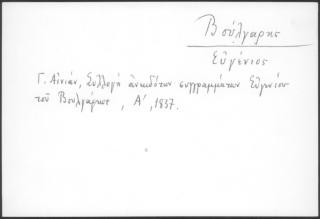 Βούλγαρης
Εὐγένιος
Γ. Αἰνιάν, Συλλογὴ ἀνεκδότων συγγραμμάτων Εὐγενίου
τοῦ Βουλγάρεως, Α', 1837.